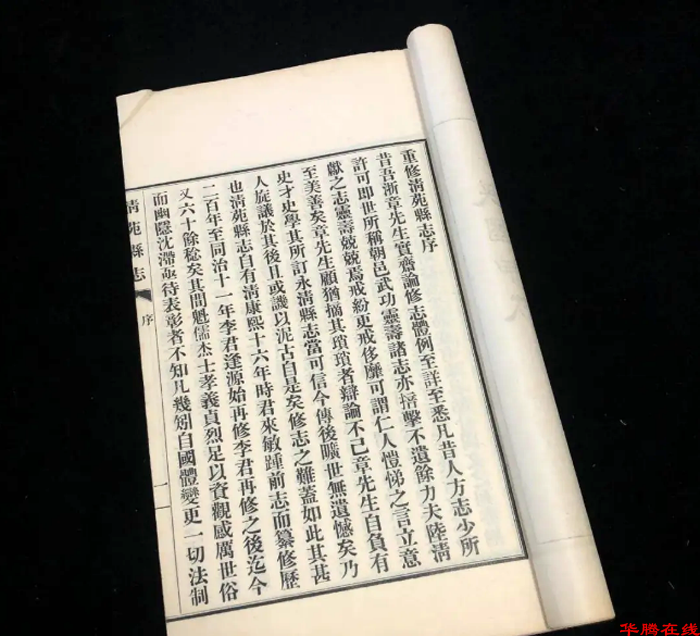 重修清苑縣志序
昔吾浙章先生實齋論修志體例至詳至悉凡昔人方志少所
許可即世所稱朝邑武功靈壽諸志亦掊擊不遺餘力夫陸清
獻之志靈壽兢兢焉戒紛更戒侈靡可謂仁人愷悌之言立意
至美善矣章先生顧猶摘其瑣瑣者辯論不已章先生自負有
史才史學其所訂永清縣志當可信今傳後曠世無遺憾矣乃
人旋議於其後且或譏以泥古自是矣修志之難蓋如此其甚
也清苑縣志自有清康熙十六年時君來敏踵前志而纂修歷
二百年至同治十一年李君逢源始再修李君再修之後迄今
又六十餘稔矣其間魁儒杰士孝義貞烈足以資觀感厲世俗
而幽隱沈滯亟待表彰者不知凡幾矧自國體變更一切法制
清苑縣志
序
一
华腾在线